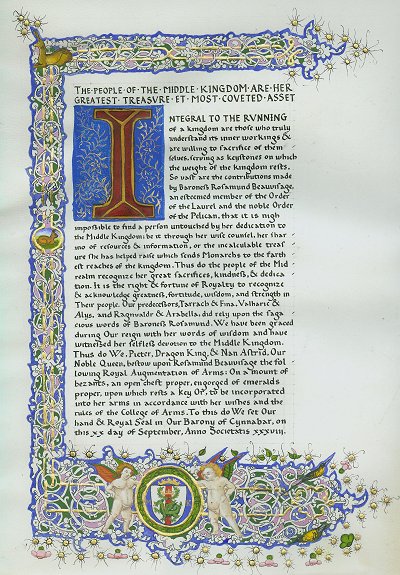 THE·PEOPLE·OF·THE·MIDDLE·KINGDOM·ARE·HER
GREATEST·TREASVRE·ET·MOST·COVETED·ASSET
INTEGRAL TO THE RVNNING
of a kingdom are those who truly
understand its inner workings &
are willing to sacrifice of them
selves, serving as keystones on which
the weight of the kingdom rests.
So vast are the contributions made
by Baroness Rosamund Beauvisage,
an esteemed member of the Order
of the Laurel and the noble Order
of the Pelican, that it is nigh
impossible to find a person untouched by her dedication to
the Middle Kingdom; be it through her wise counsel, her shar
ing of resources & information, or the incalculable treas
ure she has helped raise which sends Monarchs to the farth
est reaches of the kingdom. Thus do the people of the Mid
realm recognize her great sacrifices, kindness, & dedica
tion. It is the right & fortune of Royalty to recognize
& acknowledge greatness, fortitude, wisdom, and strength in
Their people. Our predecessors, Tarrach & Fina, Valharic &
Alys, and Ragnvaldr & Arabella, did rely upon the saga
cious words of Baroness Rosamund. We have been graced
during Our reign with her words of wisdom and have
witnessed her selfless devotion to the Middle Kingdom.
Thus do We, Pieter, Dragon King, & Nan Astrid, Our
Noble Queen, bestow upon Rosamund Beauvisage the fol
lowing Royal Augmentation of Arms: On a mount of
bezants, an open chest proper, engorged of emeralds
proper, upon which rests a key Or, to be incorporated
into her arms in accordance with her wishes and the
rules of the College of Arms. To this do We set Our
hand & Royal Seal in Our Barony of Cynnabar, on
this xx day of September, Anno Societatis xxxviii.